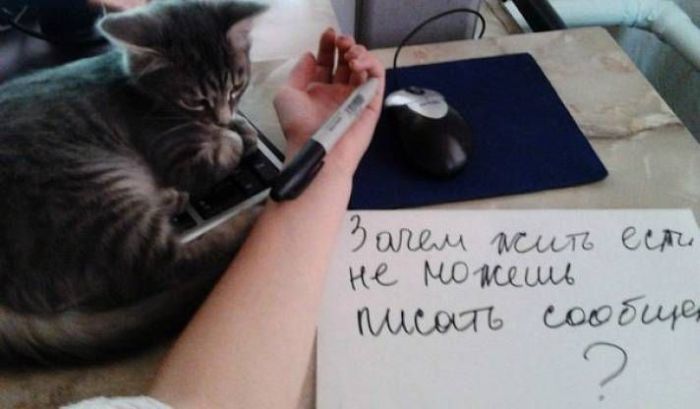 Зачем жить если
не можешь
писать сообще
?